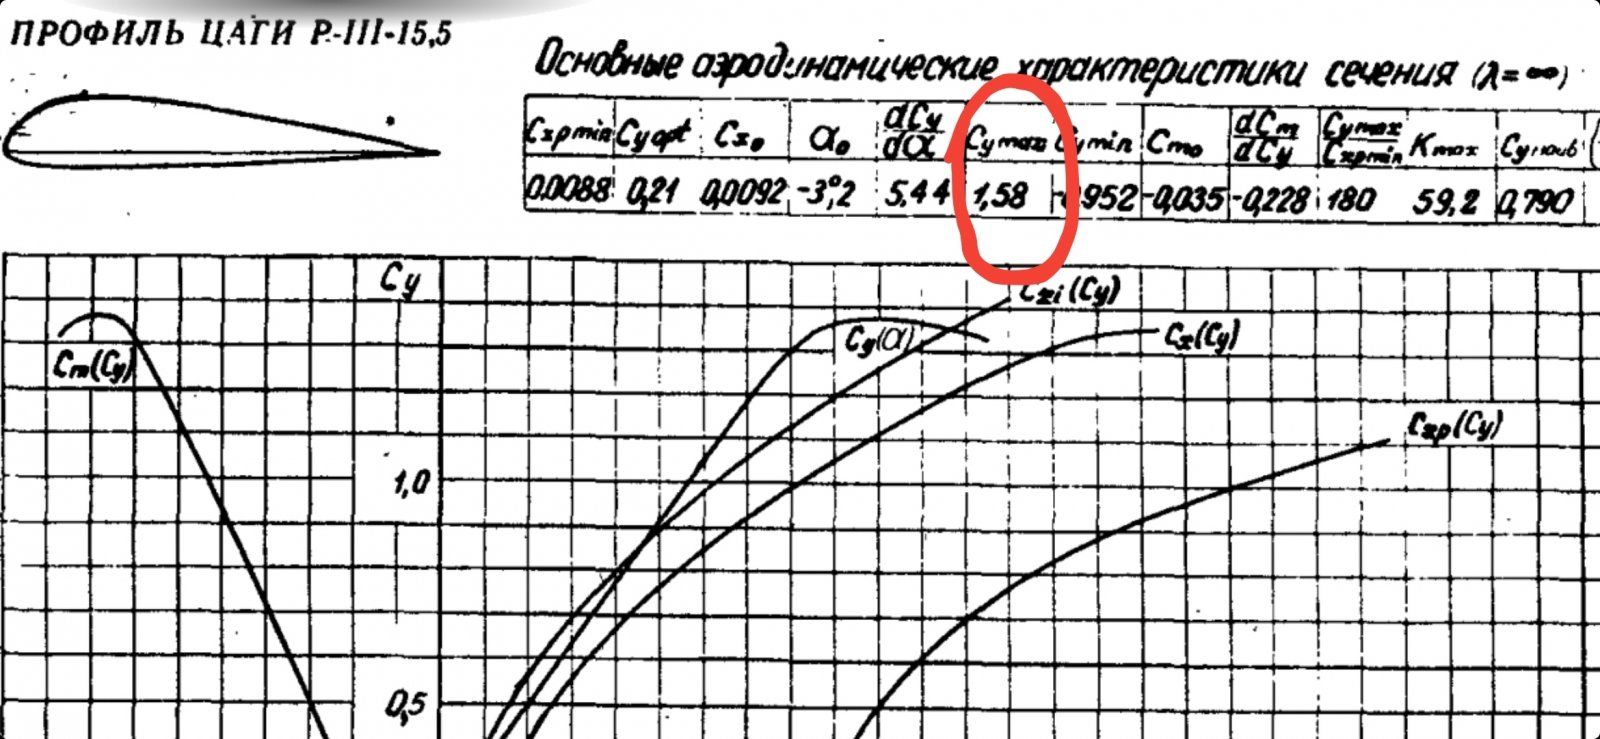 ПРОФИЛЬ ЦАГИ Р-III-15,5
Основные аэродинамические характеристики сечения (λ=∞)
Cxpmin Cyopt Cx₀ α₀ dCy/dα Cymax Cymin Cm₀ dCm/dCy Cymax/Cxpmin Kmax Cyнаив
0.0088 0,21 0,0092 -3°,2 5.44 1,58 -0,952 -0,035 -0,228 180 59,2 0,790
Cy
Cxi(Cy)
Cy(α)
Cx(Cy)
Cm(Cy)
Cxp(Cy)
1,0
0,5